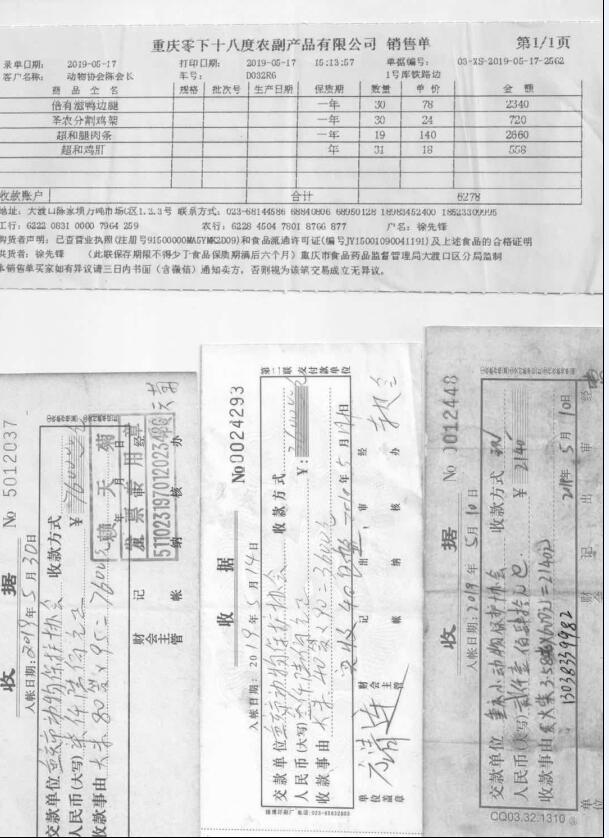 重庆零下十八度农副产品有限公司 销售单 第1/1页
录单日期: 2019-05-17 打印日期: 2019-05-17 15:13:57 单据编号: 03-XS-2019-05-17-2562
客户名称: 动物协会陈会长 车号: D032R6 1号库铁路边
商品全名 规格 批次号 生产日期 保质期 数量 单价 金额
倍有滋鸭边腿 一年 30 78 2340
圣农分割鸡架 一年 30 24 720
超和腿肉条 一年 19 140 2660
超和鸡肝 年 31 18 558
收款账户 合计 6278
地址: 大渡口陈家坝万吨市场C区1.2.3号 联系方式: 023-68144586 68840806 68950128 18983452400 18523309995
工行: 6222 0831 0000 7964 259 农行: 6228 4504 7801 8766 877 户名: 徐先锋
购货者声明: 已查营业执照(注册号91500000MA5YMK2D09)和食品流通许可证(编号JY15001090041191)及上述食品的合格证明
供货者: 徐先锋 (此联保存期限不得少于食品保质期满后六个月)重庆市食品药品监督管理局大渡口区分局监制
本销售单买家如有异议请三日内书面(含微信)通知卖方, 否则视为该笔交易成立无异议。
收 据 No 5012037
入帐日期: 2019年5月30日
交款单位 重庆市动物保护协会 收款方式
人民币(大写) 柒仟陆佰元正 ¥ 7600元
收款事由 大米 80袋×95=7600元
财会主管 记帐 出纳 审核 经办
发票专用
511023197012023
收 据 No 0024293
第二联 交付款单位
入帐日期: 2019年5月14日
交款单位 重庆市动物保护协会 收款方式
人民币(大写) 叁仟陆佰元正 ¥: 3600元
收款事由 大米 40袋×90=3600元
实收40袋 2019年5月19日
单位盖章 财会主管 记帐 出纳 审核 经办
电话:023-65632603
收 据 No 0012448
入帐日期: 2019年5月10日
交款单位 重庆小动物保护协会 收款方式 现
人民币(大写) 贰仟壹佰肆拾元 ¥ 2140
收款事由 2140元
13038339982 2019年5月10日
CQ03.32.1310